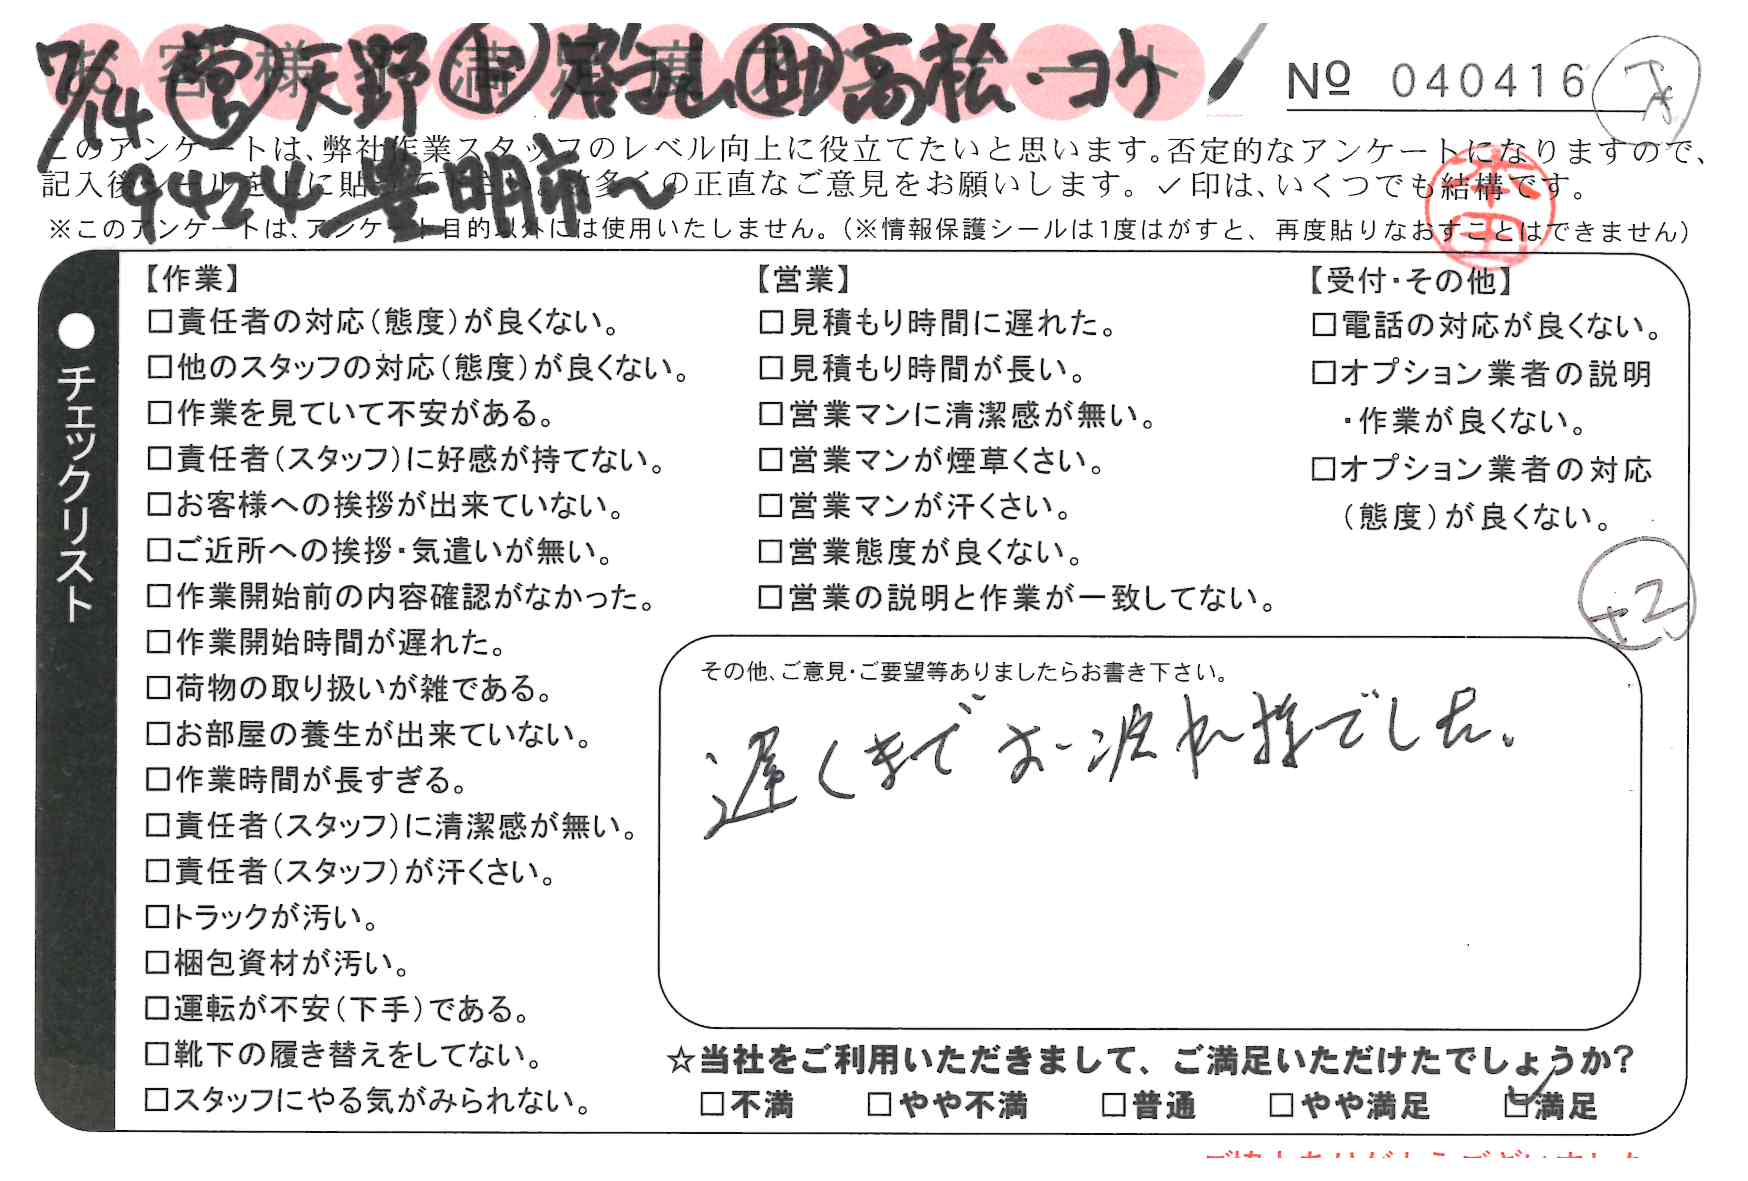 お客様満足度アンケート
7/14 営 矢野 作 岩やし 助 高松・コケ
№ 040416
9424 豊明市〜
このアンケートは、弊社作業スタッフのレベル向上に役立てたいと思います。否定的なアンケートになりますので、
記入後シールを上に貼って下さい。数多くの正直なご意見をお願いします。✓印は、いくつでも結構です。
※このアンケートは、アンケート目的以外には使用いたしません。(※情報保護シールは1度はがすと、再度貼りなおすことはできません)
●チェックリスト
【作業】
□責任者の対応(態度)が良くない。
□他のスタッフの対応(態度)が良くない。
□作業を見ていて不安がある。
□責任者(スタッフ)に好感が持てない。
□お客様への挨拶が出来ていない。
□ご近所への挨拶・気遣いが無い。
□作業開始前の内容確認がなかった。
□作業開始時間が遅れた。
□荷物の取り扱いが雑である。
□お部屋の養生が出来ていない。
□作業時間が長すぎる。
□責任者(スタッフ)に清潔感が無い。
□責任者(スタッフ)が汗くさい。
□トラックが汚い。
□梱包資材が汚い。
□運転が不安(下手)である。
□靴下の履き替えをしてない。
□スタッフにやる気がみられない。
【営業】
□見積もり時間に遅れた。
□見積もり時間が長い。
□営業マンに清潔感が無い。
□営業マンが煙草くさい。
□営業マンが汗くさい。
□営業態度が良くない。
□営業の説明と作業が一致してない。
【受付・その他】
□電話の対応が良くない。
□オプション業者の説明
・作業が良くない。
□オプション業者の対応
(態度)が良くない。
+2
その他、ご意見・ご要望等ありましたらお書き下さい。
遅くまでお疲れ様でした。
☆当社をご利用いただきまして、ご満足いただけたでしょうか?
□不満 □やや不満 □普通 □やや満足 ☑満足
ご協力ありがとうございました